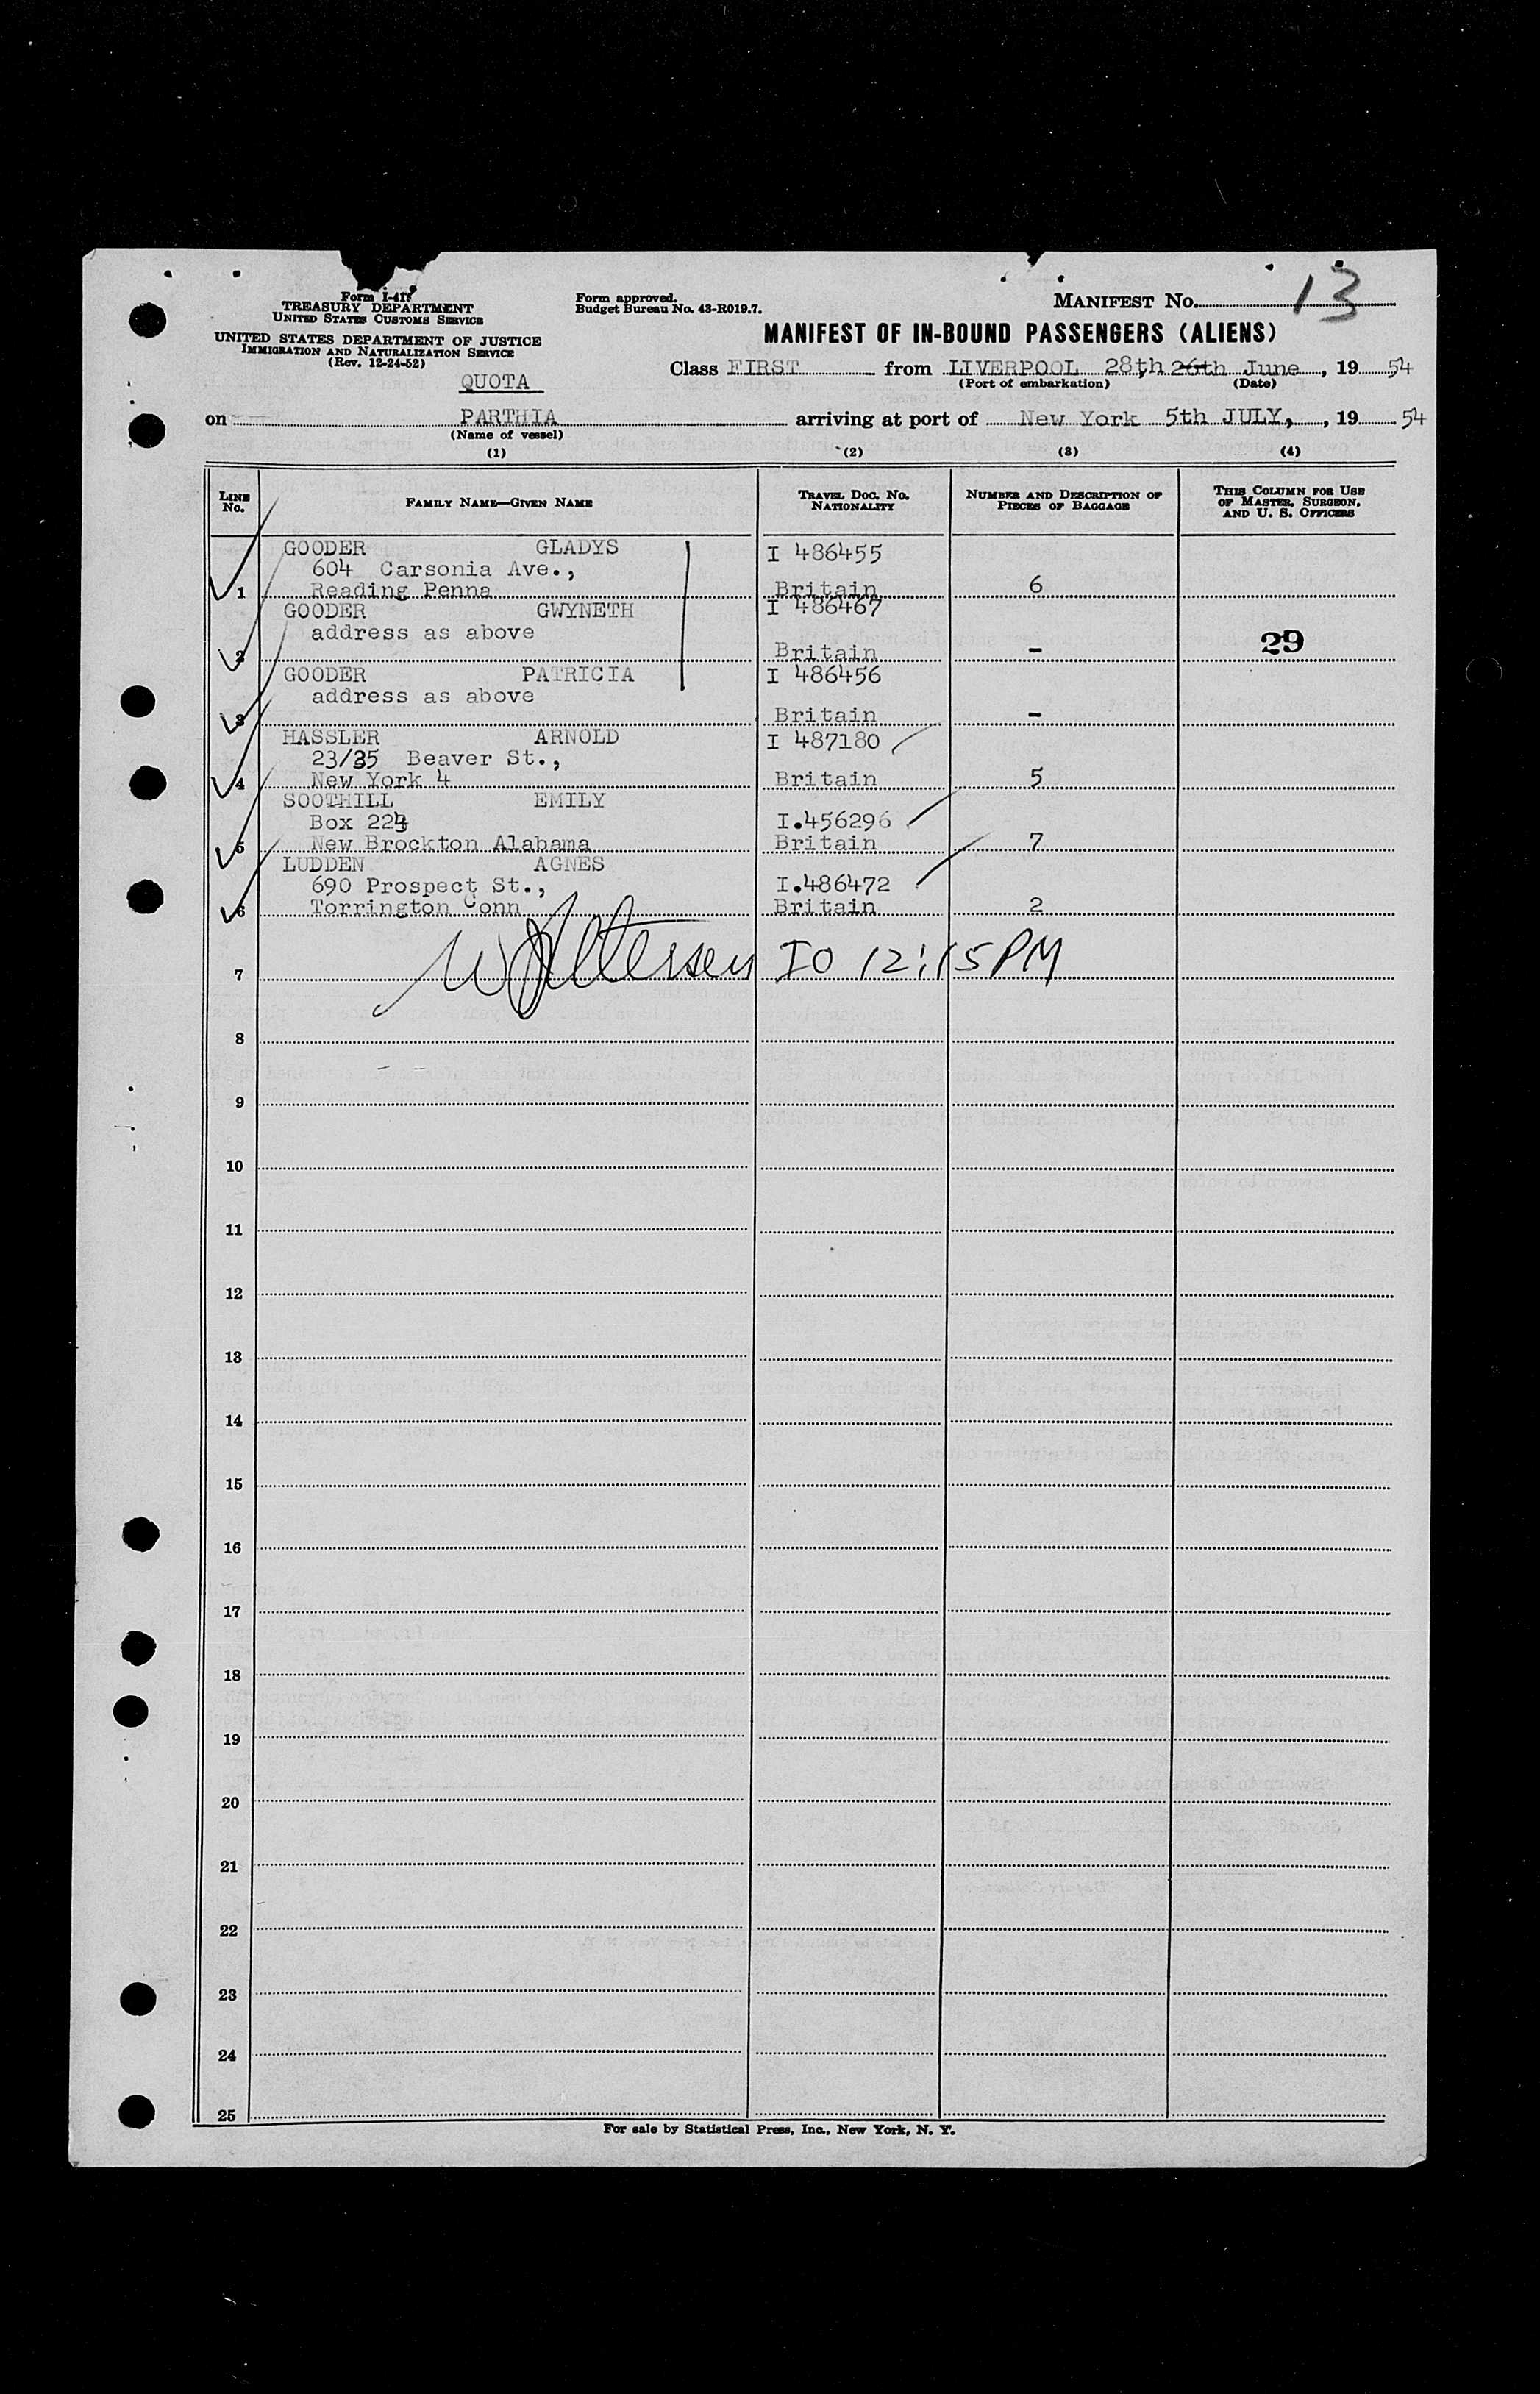 Form I-418
TREASURY DEPARTMENT
UNITED STATES CUSTOMS SERVICE
UNITED STATES DEPARTMENT OF JUSTICE
IMMIGRATION AND NATURALIZATION SERVICE
(Rev. 12-24-52)
Form approved.
Budget Bureau No. 43-R019.7.
MANIFEST No. 13
MANIFEST OF IN-BOUND PASSENGERS (ALIENS)
QUOTA
Class FIRST from LIVERPOOL 28th 26th June, 1954
(Port of embarkation) (Date)
on PARTHIA arriving at port of New York 5th JULY, , 1954
(Name of vessel)
(1) (2) (3) (4)
LINE No. FAMILY NAME—GIVEN NAME TRAVEL DOC. NO. NATIONALITY NUMBER AND DESCRIPTION OF PIECES OF BAGGAGE THIS COLUMN FOR USE OF MASTER, SURGEON, AND U. S. OFFICERS
GOODER GLADYS I 486455
604 Carsonia Ave.,
1 Reading Penna Britain 6
GOODER GWYNETH I 486467
address as above
2 Britain - 29
GOODER PATRICIA I 486456
address as above
3 Britain -
HASSLER ARNOLD I 487180
23/35 Beaver St.,
4 New York 4 Britain 5
SOOTHILL EMILY
Box 224 I.456296
5 New Brockton Alabama Britain 7
LUDDEN AGNES
690 Prospect St., I.486472
6 Torrington Conn Britain 2
7 IO 12:15PM
8
9
10
11
12
13
14
15
16
17
18
19
20
21
22
23
24
25
For sale by Statistical Press, Inc., New York, N. Y.